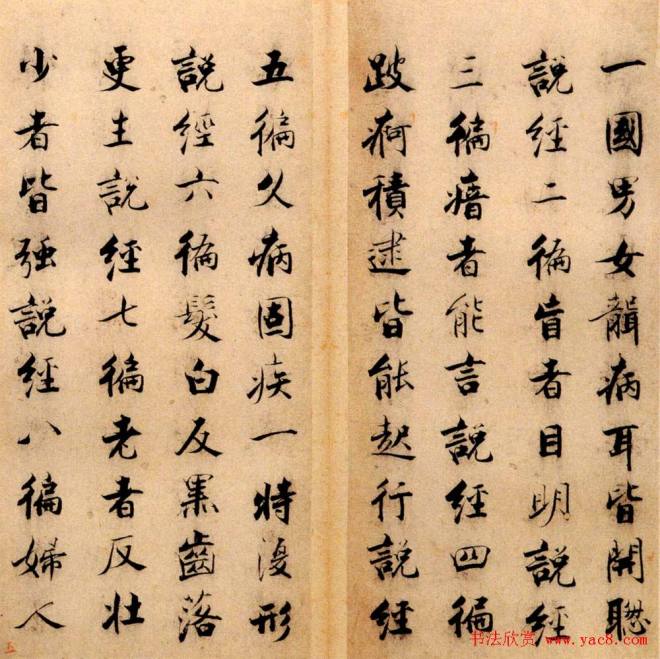 一國男女聾病耳皆開聰
説經二徧盲者目明説經
三徧瘖者能言説經四徧
跛痾積逮皆能起行説經
五徧久病固疾一時復形
説經六徧髮白反黑齒落
更生説經七徧老者反壯
少者皆强説經八徧婦人
五
书法欣赏 www.yac8.com